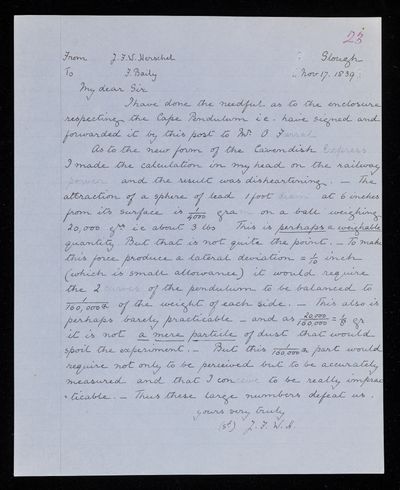 25
From J.F.W. Herschel Slough
To F. Baily Nov 17. 1839
My dear Sir
I have done the needful as to the enclosure
respecting the Cape Pendulum i.e. have signed and
forwarded it by this post to Mr. O
As to the new form of the Cavendish Express
I made the calculation in my head on the railway
and the result was disheartening. — The
attraction of a sphere of lead 1 foot at 6 inches
from its surface is 1/4000 grain on a ball weighing
20,000 grs i.e about 3 lbs This is perhaps a weighable
quantity But that is not quite the point. — To make
this force produce a lateral deviation = 1/10 inch
(which is small allowance) it would require
the 2 of the pendulum to be balanced to
of the weight of each side. — This also is
perhaps barely practicable — and as = gr
it is not a mere particle of dust that would
spoil the experiment. — But this part would
require not only to be perceived but to be accurately
measured and that I conceive to be really imprac
ticable. — Thus these large numbers defeat us.
yours very truly
J. F. W. H.